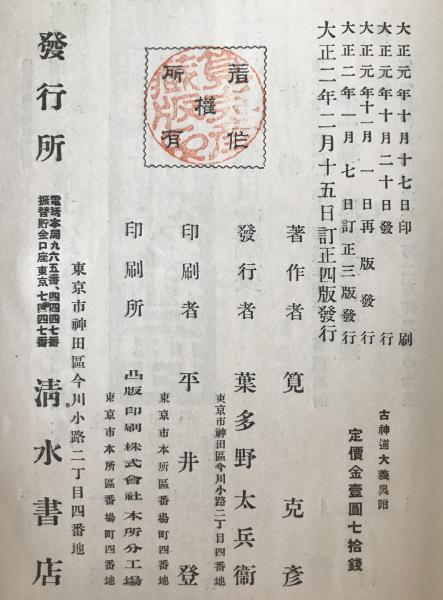 大正元年十月十七日印刷
大正元年十月二十日發行
大正元年十一月一日再版發行
大正二年一月七日訂正三版發行
大正二年二月十五日訂正四版發行
古神道大義奧附
定價金壹圓七拾錢
著作權所有
著作者 筧克彥
東京市神田區今川小路二丁目四番地
發行者 葉多野太兵衞
東京市本所區番場町四番地
印刷者 平井登
東京市本所區番場町四番地
印刷所 凸版印刷株式會社本所分工場
東京市神田區今川小路二丁目四番地
發行所 清水書店
電話本局九六五番、四四四七番
振替貯金口座東京七四四七番